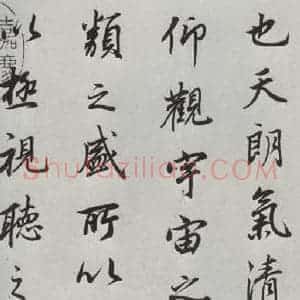 也天朗氣清
仰觀宇宙之
類之盛所以
以極視聽之
ShufaZiliao.COM